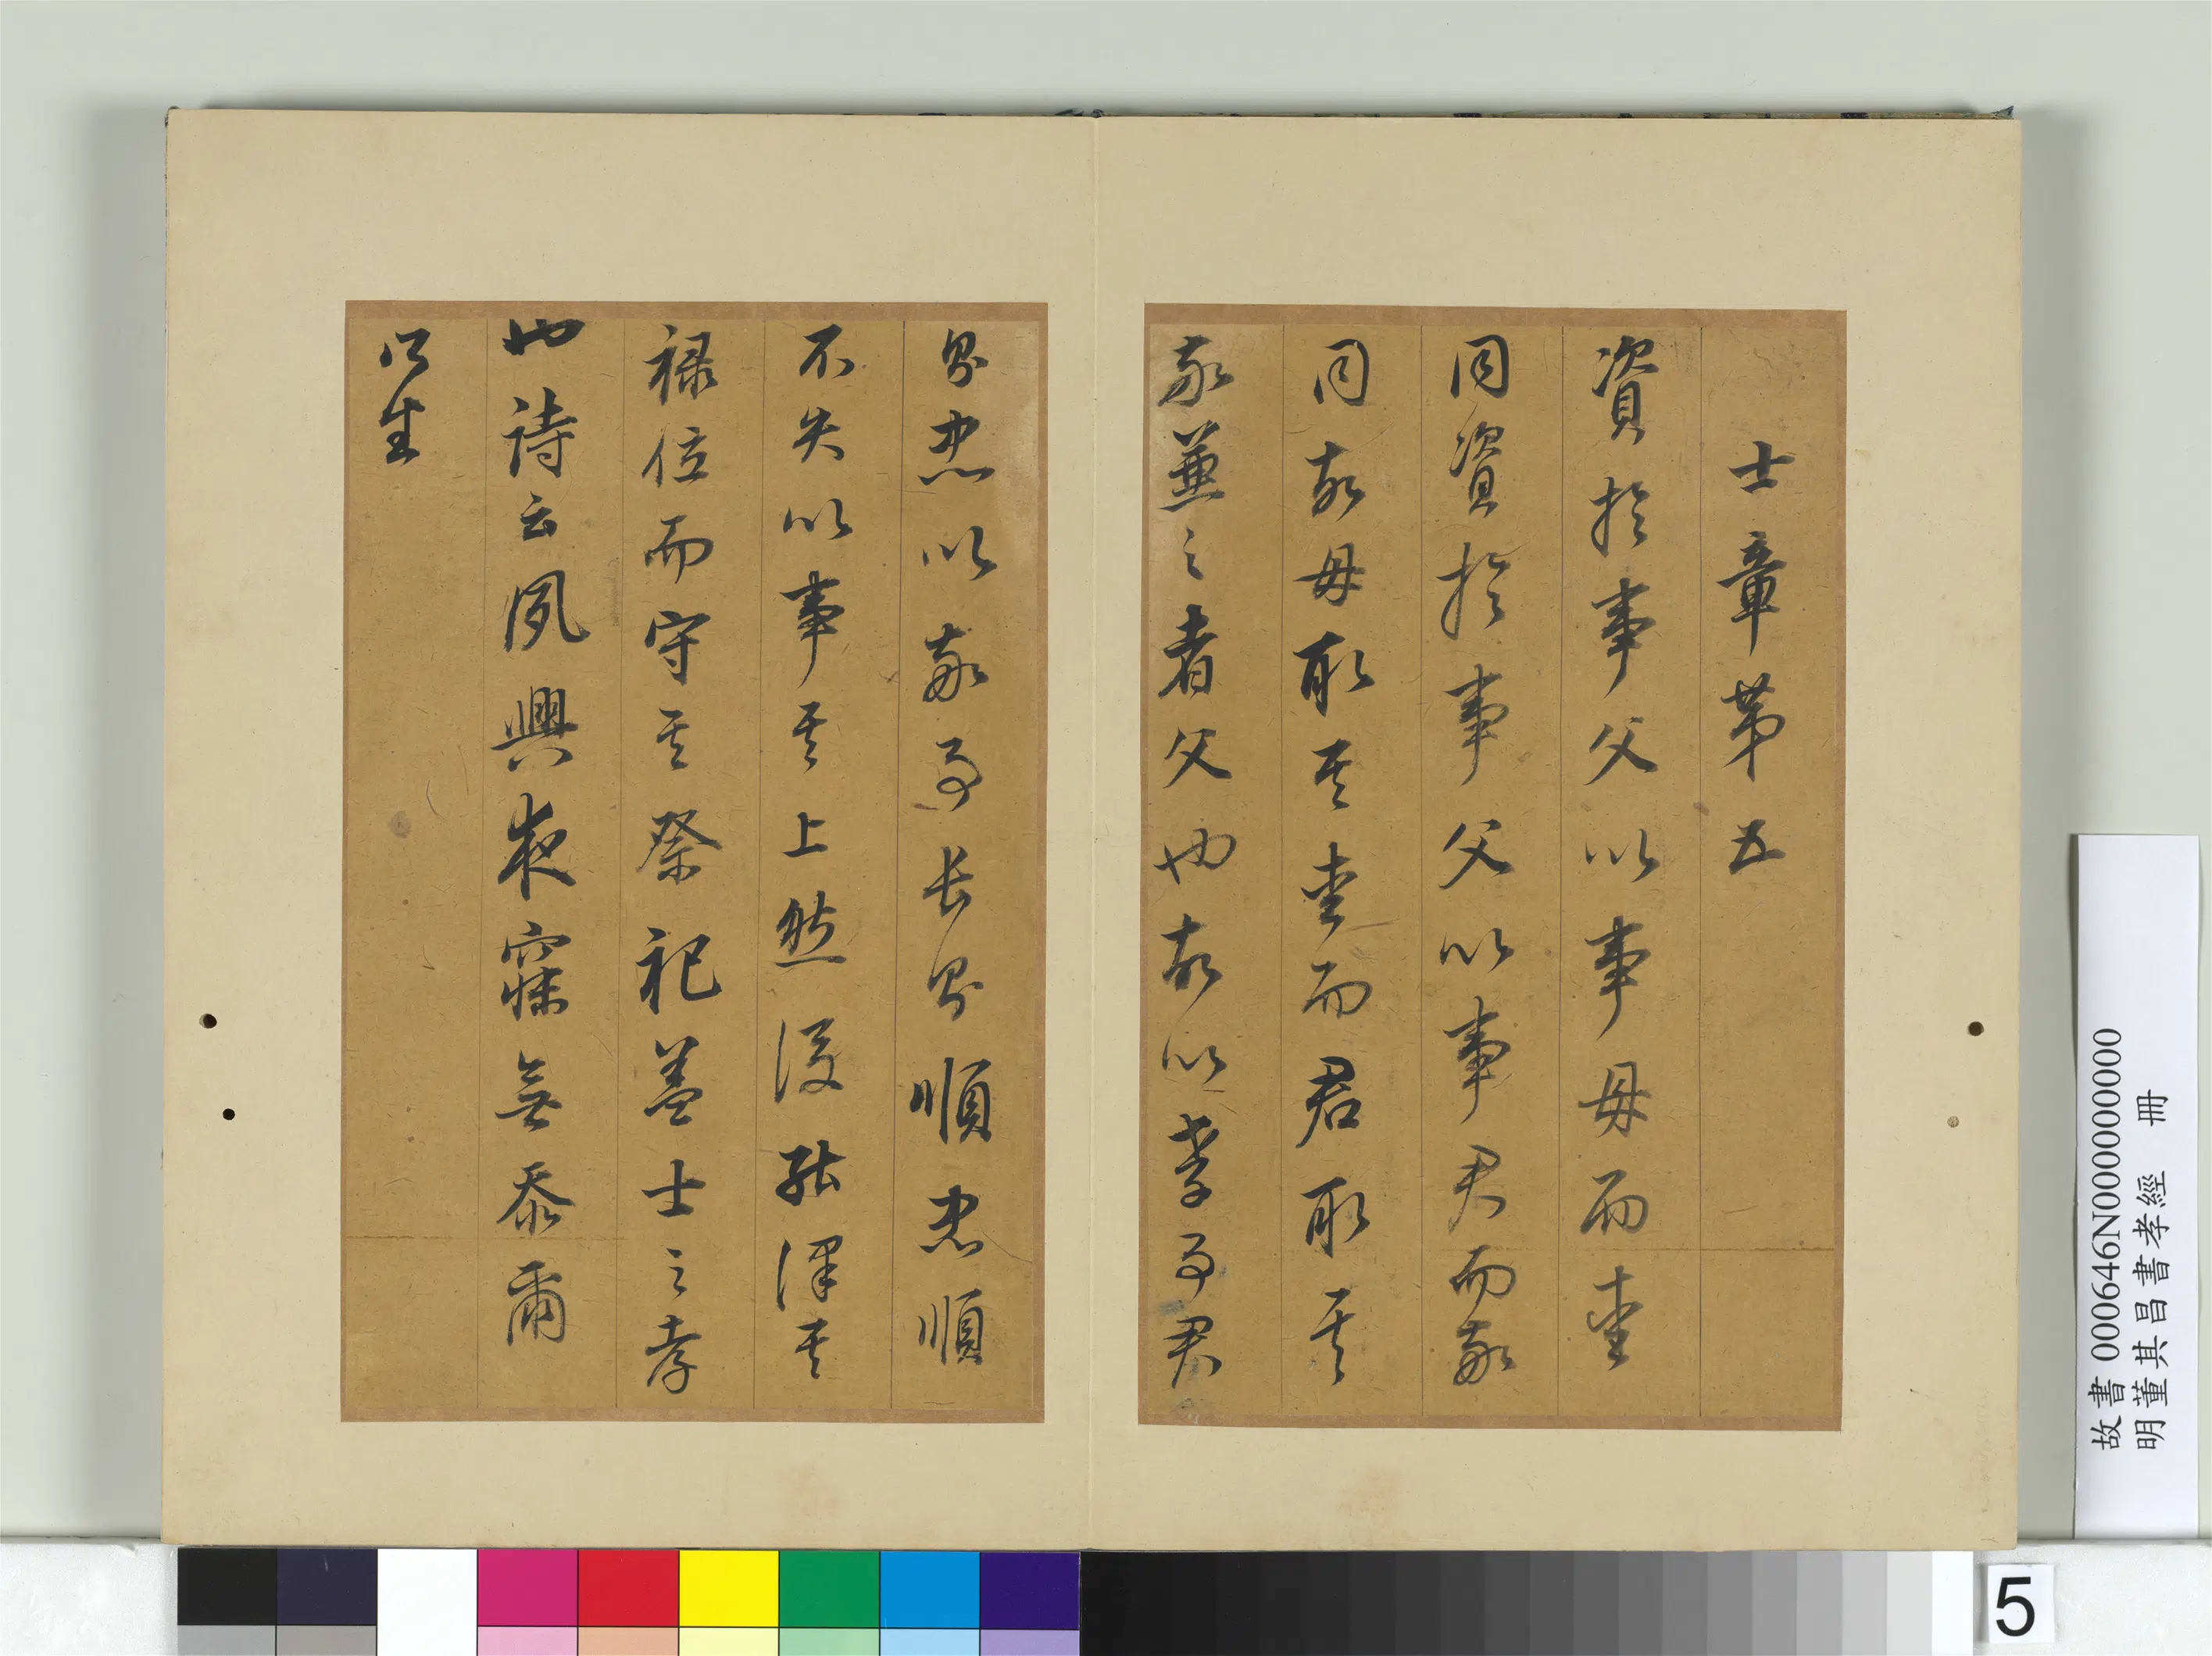 士章第五
資於事父以事母而愛
同資於事父以事君而敬
同故母取其愛而君取其
敬兼之者父也故以孝事君
則忠以敬事長則順忠順
不失以事其上然後能保其
禄位而守其祭祀盖士之孝
也詩云夙興夜寐無忝爾
所生
故書 000646N000000000
明董其昌書孝經 冊
5